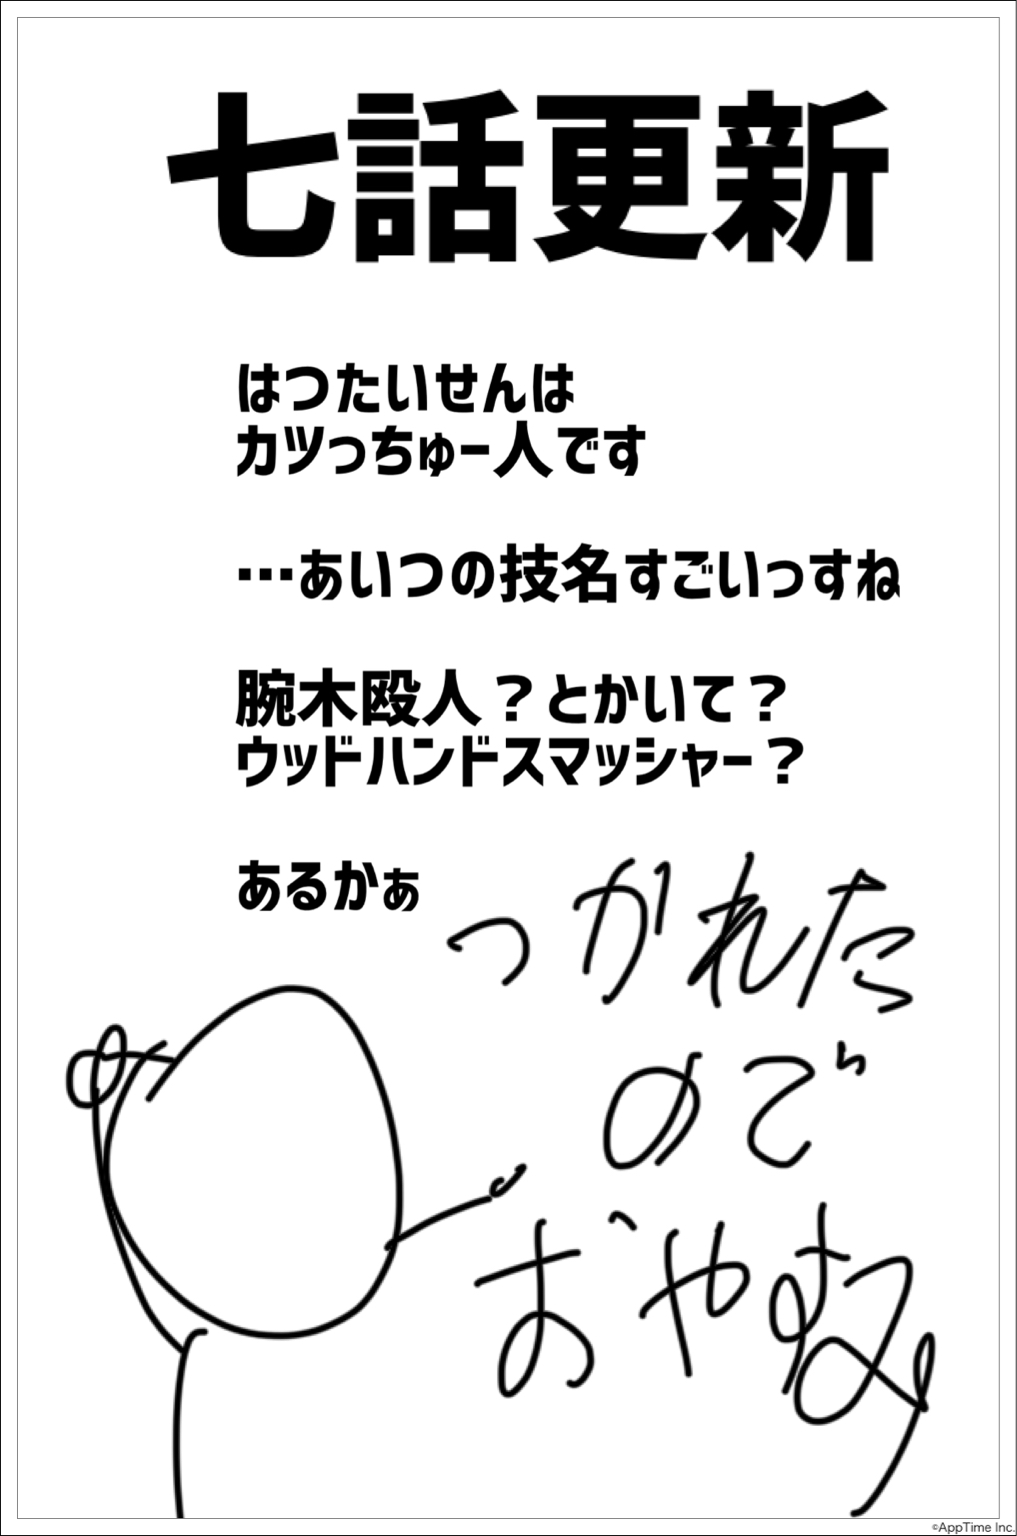 七話更新
はつたいせんは
カツっちゅー人です
…あいつの技名すごいっすね
腕木殴人？とかいて？
ウッドハンドスマッシャー？
あるかぁ
つかれた
ので
おやすみ
©AppTime Inc.